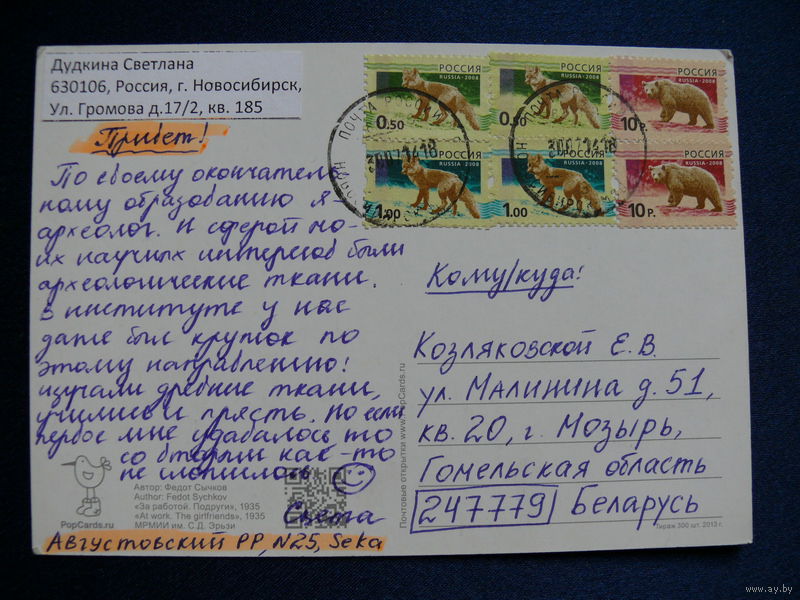 Дудкина Светлана
630106, Россия, г. Новосибирск,
Ул. Громова д.17/2, кв. 185
Привет!
По своему окончатель
ному образованию я-
археолог. И сферой мо-
их научных интересов были
археологические ткани.
в институте у нас
даже был кружок по
этому направлению!
изучали древние ткани,
учились и прясть. Но если
первое мне удавалось, то
со вторым как-то
не сложилось
Света
Автор: Федот Сычков
Author: Fedot Sychkov
«За работой. Подруги», 1935
«At work. The girlfriends», 1935
МРМИИ им. С.Д. Эрьзи
PopCards.ru
Августовский РР, N25, Seka
РОССИЯ
RUSSIA · 2008
0.50
РОССИЯ
RUSSIA · 2008
0.50
РОССИЯ
RUSSIA · 2008
10 Р.
RUSSIA · 2008
1.00
1.00
РОССИЯ
RUSSIA · 2008
10 Р.
ПОЧТА РОССИИ
30071418
30071418
Кому/куда:
Козляковской Е.В.
ул. Малинина д. 51,
кв. 20, г. Мозырь,
Гомельская область
247779 Беларусь
Почтовые открытки www.PopCards.ru
Тираж 300 шт. 2013 г.
www.ay.by